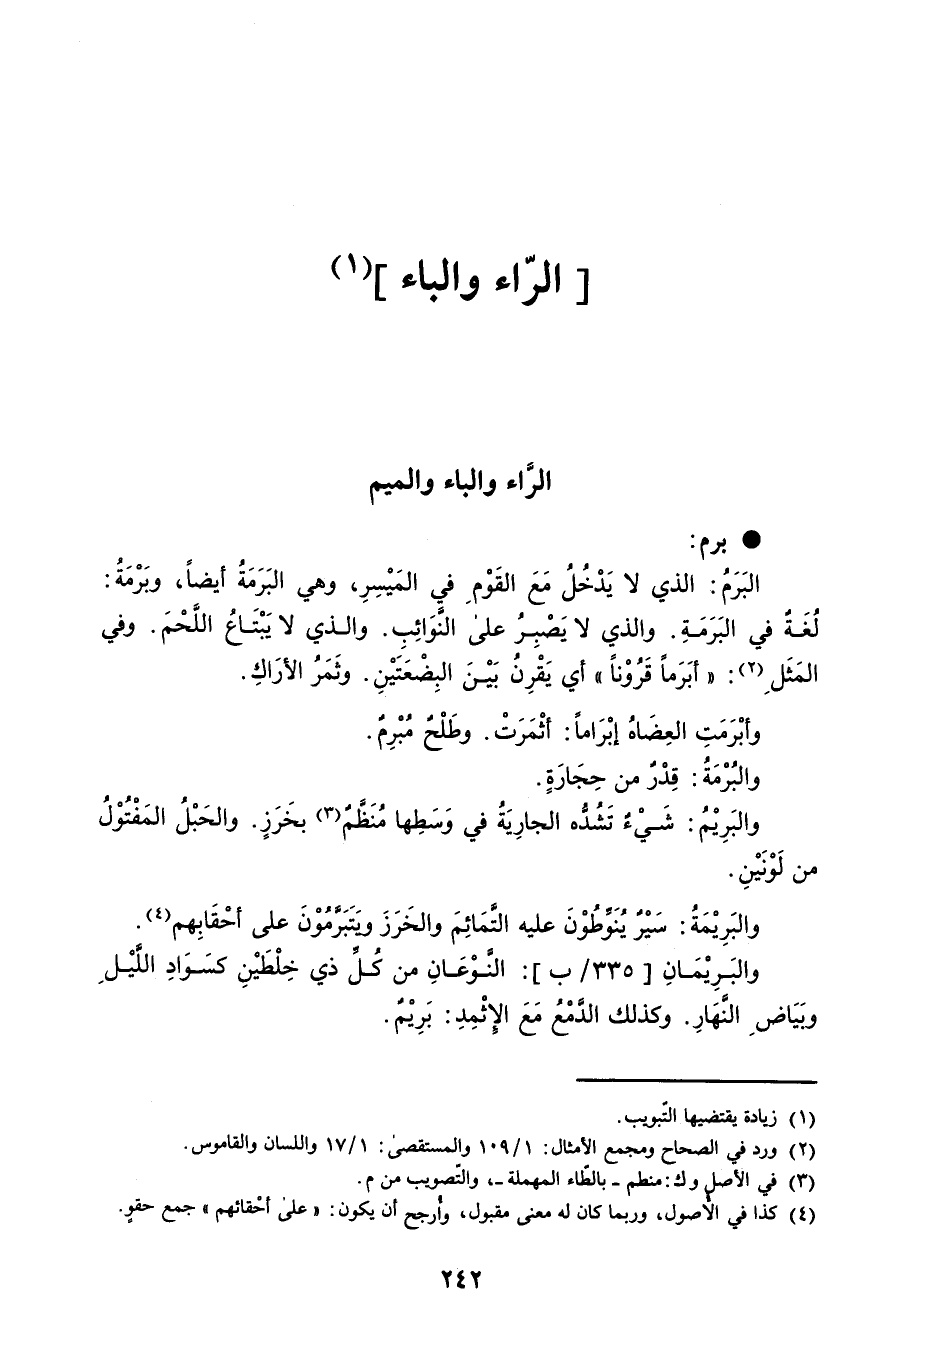 [ الرّاء والباء ](١)
الرَّاء والباء والميم
● برم:
البَرَمُ: الذي لا يَدْخُلُ مَعَ القَوْمِ في المَيْسِرِ، وهي البَرَمَةُ أيضاً، وبَرْمَةُ:
لُغَةٌ في البَرَمَةِ. والذي لا يَصْبِرُ علىٰ النَّوَائِبِ. والـذي لا يَبْتَـاعُ اللَّحْمَ. وفي
المَثَلِ(٢): « أبَرَماً قَرُوْناً » أي يَقْرِنُ بَيْـنَ البِضْعَتَيْنِ. وثَمَرُ الأرَاكِ.
وأبْرَمَتِ العِضَاهُ إبْرَاماً: أثْمَرَتْ. وطَلْحٌ مُبْرِمٌ.
والبُرْمَةُ: قِدْرٌ من حِجَارَةٍ.
والبَرِيْمُ: شَـيْءٌ تَشُدُّه الجارِيَةُ في وَسَطِها مُنَظَّمٌ(٣) بخَرَزٍ. والحَبْلُ المَفْتُوْلُ
من لَوْنَيْنِ.
والبَرِيْمَةُ: سَيْرٌ يُنَوِّطُوْنَ عليه التَّمَائِمَ والخَرَزَ ويَتَبَرَّمُوْنَ على أحْقَابِهم(٤).
والبَـرِيْمَـانِ [ ٣٣٥/ ب ]: النَّـوْعَـانِ من كُـلِّ ذي خِلْطَيْنِ كسَـوَادِ اللَّيْـلِ
وبَيَاضِ النَّهَارِ. وكذلك الدَّمْعُ مَعَ الإِثْمِدِ: بَرِيْمٌ.
(١) زيادة يقتضيها التّبويب.
(٢) ورد في الصحاح ومجمع الأمثال: ١٠٩/١ والمستقصىٰ: ١٧/١ واللسان والقاموس.
(٣) في الأصل و ك: منطم ـ بالطّاء المهملة ـ، والتّصويب من م.
(٤) كذا في الأصول، وربما كان له معنى مقبول، وأرجح أن يكون: « علىٰ أحْقائهم » جمع حقوٍ.
٢٤٢